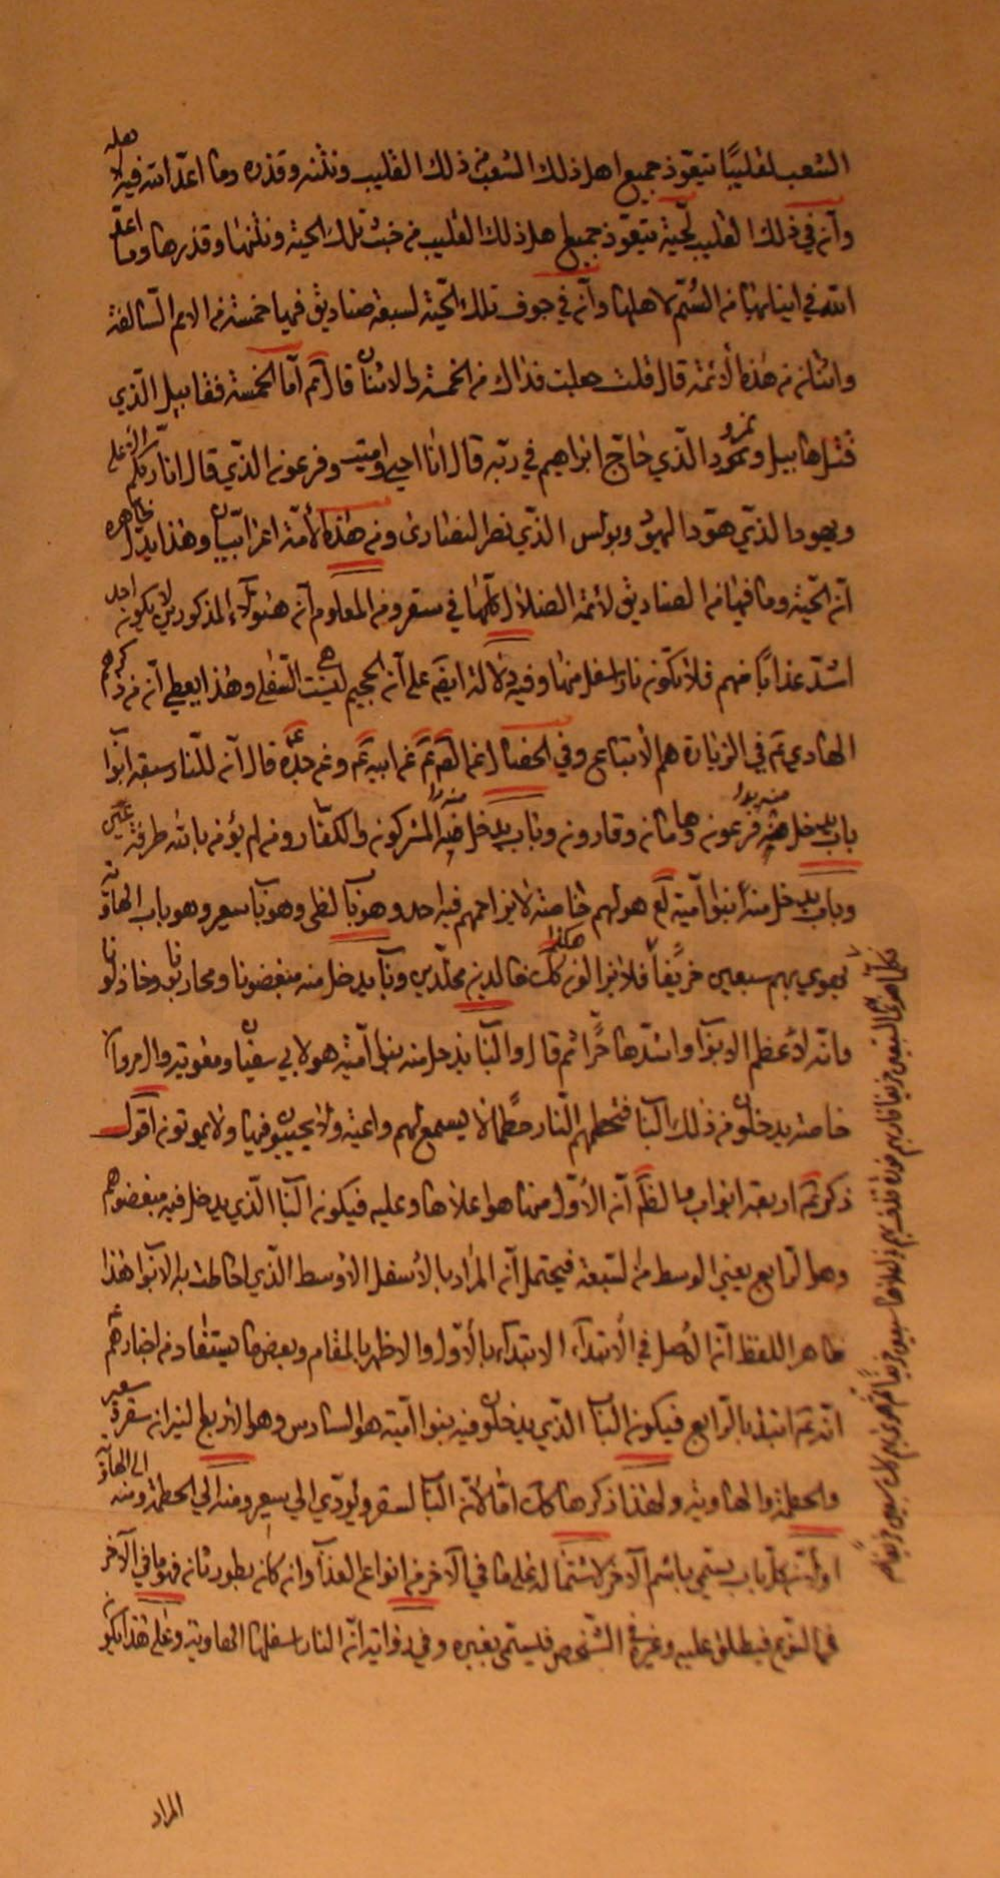 الشعب لقليبًا يتعوّذ جميع اهل ذلك الشعب من ذلك القليب ونتنه وقذره وما اعدّ الله فيه لاهله
وأنّ في ذلك القليب لحيّة يتعوّذ جميع اهل ذلك القليب من خبث تلك الحيّة ونتنها وقذرها وما اعدّ
الله في انيابها من السّمّ لاهلها وأنّ في جوف تلك الحيّة لسبعة صناديق فيها خمسة من الامم السّالفة
واثنان من هذه الأمّة قال قلت جعلت فداك من الخمسة والاثنان قال ع اما الخمسة فقابيل الّذي
قتل هابيل ونمرود الّذي حاجّ ابراهيم في ربّه قال انا احيي واميت وفرعون الذي قال انا ربّكم الأعلى
ويهودا الذي هوّد اليهود وبولس الذي نصّر النصارى ومن هذه الأمّة اعرابيّان وهذا يدلّ بظاهره
أنّ الحيّة وما فيها من الصناديق لأئمة الضلال كلّها في سقر ومن المعلوم أنّ هؤلاء المذكورين لا يكون احد
اشدّ عذابًا منهم فلا تكون نار اسفل منها وفيه دلالة ايضًا على أنّ الجحيم ليست هي السّفلى وهذا يعطي أنّ من ذكرهم
الهادي ع في الزيارة هم الأتباع وفي الخصال عن الصّم ع عن ابيه ع وعن جدّه ع قال أنّ للنّار سبعة ابواب
باب يدخل منه فرعون وهامان وقارون وباب يدخل منه المشركون والكفّار ومن لم يؤمن بالله طرفة عين
وباب يدخل منه بنوا اميّة لع هو لهم خاصة لا يزاحمهم فيه احد وهو باب لظى وهو باب سعير وهو باب الهاوية
تهوي بهم سبعين خريفًا فلا يزالون هكذا كك خالدين مخلّدين وباب يدخل منه مبغضونا ومحاربونا وخاذلونا
وانّه لأعظم الابواب واشدّها حرًّا ثم قال والباب يدخل منه بنوا اميّة هو لابي سفيان ومعوية وال مروان
خاصة يدخلون من ذلك الباب فتحطمهم النّار حطمًا لا يسمع لهم واعية ولا يحيون فيها ولا يموتون اقول
ذكر ع اربعة ابواب والظّم أنّ الأوّل منها هو اعلاها وعليه فيكون الباب الّذي يدخل فيه مبغضوهم
وهو الرابع يعني الوسط من السّبعة فيحتمل أنّ المراد بالأسفل الاوسط الّذي احاطت به الابواب هذا
ظاهر اللفظ أنّ الاصل في الأبتداء الابتداء بالأوّل والاظهر بالمقام وبعض ما يستفاد من اخبارهم ع
انّه ع ابتدا بالرابع فيكون الباب الذي يدخلون فيه بنوا اميّة هو السادس وهو الأربع لنيران سقر وسعير
والحطمة والهاوية ولهذا ذكرها كك امّا لأنّ الباب لسقر ويؤدّي الى سعير ومنه الى الحطمة ومنه الى الهاوية
او أنّ كلّ باب يسمّى باسم الآخر لاشتماله على ما في الآخر من انواع العذاب وان كان بطور ثانٍ فهو ما في الآخر
في النوع فيطلق عليه وغيره في الشخص فيسمّى بغيره وفي رواية انّ النار اسفلها الهاوية وعلى هذا يكون
المراد